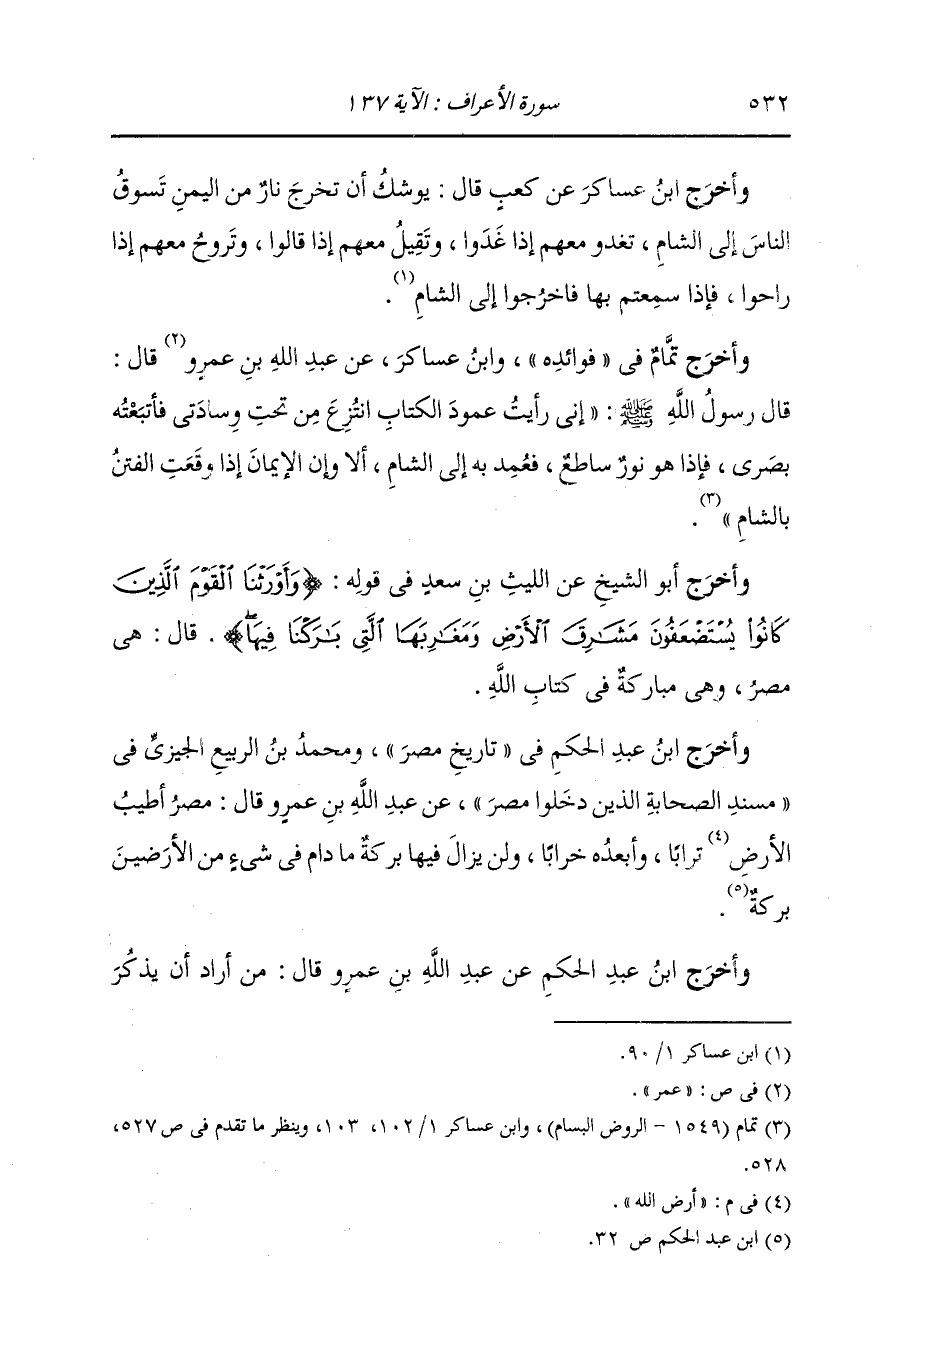 ٥٣٢ سورة الأعراف : الآية ١٣٧
وأخرَج ابنُ عساكرَ عن كعبٍ قال : يوشكُ أن تخرجَ نارٌ من اليمنِ تَسوقُ
الناسَ إلى الشامِ ، تغدو معهم إذا غَدَوا ، وتَقِيلُ معهم إذا قالوا ، وتَروحُ معهم إذا
راحوا ، فإذا سمِعتم بها فاخرُجوا إلى الشامِ(١) .
وأخرَج تمَّامٌ فى « فوائدِه » ، وابنُ عساكرَ ، عن عبدِ اللهِ بنِ عمرٍو(٢) قال :
قال رسولُ اللَّهِ ﷺ : « إنى رأيتُ عمودَ الكتابِ انتُزِعَ مِن تحتِ وِسادَتى فأتبَعْتُه
بصَرى ، فإذا هو نورٌ ساطعٌ ، فعُمِد به إلى الشامِ ، ألا وإن الإيمانَ إذا وقَعَتِ الفتنُ
بالشامِ »(٣) .
وأخرَج أبو الشيخِ عن الليثِ بنِ سعدٍ فى قولِه : ﴿وَأَوْرَثْنَا ٱلْقَوْمَ ٱلَّذِينَ
كَانُوا۟ يُسْتَضْعَفُونَ مَشَـٰرِقَ ٱلْأَرْضِ وَمَغَـٰرِبَهَا ٱلَّتِى بَـٰرَكْنَا فِيهَاۖ﴾ . قال : هى
مصرُ ، وهى مباركةٌ فى كتابِ اللَّهِ .
وأخرَج ابنُ عبدِ الحكمِ فى « تاريخِ مصرَ » ، ومحمدُ بنُ الربيعِ الجيزىُّ فى
« مسندِ الصحابةِ الذين دخَلوا مصرَ » ، عن عبدِ اللَّهِ بنِ عمرٍو قال : مصرُ أطيبُ
الأرضِ(٤) ترابًا ، وأبعدُه خرابًا ، ولن يزالَ فيها بركةٌ ما دام فى شىءٍ من الأرَضينَ
بركةٌ(٥) .
وأخرَج ابنُ عبدِ الحكمِ عن عبدِ اللَّهِ بنِ عمرٍو قال : من أراد أن يذكُرَ
(١) ابن عساكر ١/ ٩٠.
(٢) فى ص : «عمر» .
(٣) تمام (١٥٤٩ - الروض البسام) ، وابن عساكر ١/ ١٠٢، ١٠٣، وينظر ما تقدم فى ص ٥٢٧،
٥٢٨.
(٤) فى م : «أرض الله» .
(٥) ابن عبد الحكم ص ٣٢.